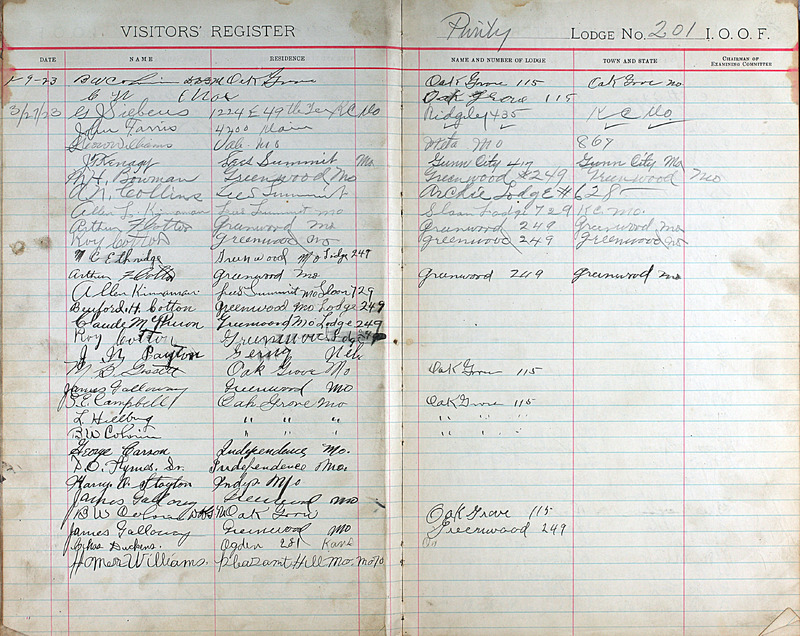 VISITORS' REGISTER Purity LODGE NO. 201 I. O. O. F.
DATE NAME RESIDENCE NAME AND NUMBER OF LODGE TOWN AND STATE CHAIRMAN OF EXAMINING COMMITTEE
1-9-23 B W Oak Grove Oak Grove 115 Oak Grove Mo
C W Oak Grove 115
3/27/23 G Siebens 1224 E 49th Ter K C Mo Ridgley 435 K C Mo
John Farris 4200 Main
Williams Mo Meta Mo 869
J Kenagy Lees Summit Mo Gunn City 417 Gunn City Mo
Bowman Greenwood Mo Greenwood #249 Greenwood Mo
A. N. Collins Lees Summit Archie Lodge #628
Allen L. Kinaman Lees Summit Mo Sloan Lodge 729 K C Mo.
Arthur F Cotton Greenwood Mo Greenwood 249 Greenwood Mo
Roy Cotton Greenwood Mo Greenwood 249 Greenwood Mo
M C Ethridge Greenwood Mo Lodge 249
Arthur F Cotton Greenwood Mo Greenwood 249 Greenwood Mo
Allen Kinaman Lees Summit Mo Sloan 729
Buford H. Cotton Greenwood Mo Lodge 249
Claude Greenwood Mo Lodge 249
Roy Cotton Greenwood Lodge
J. N. Payton Gering Neb
B Gossett Oak Grove Mo Oak Grove 115
James Galloway Greenwood Mo
Campbell Oak Grove Mo Oak Grove 115
L. Hilburg " " " " " " "
B W " " " " " " "
George Carson Independence Mo.
P. O. Hymes. Sr. Independence Mo.
Harry Slayton Indep Mo
James Galloway Greenwood Mo
B W Oak Grove Oak Grove 115
James Galloway Greenwood Mo Greenwood 249
Ogden 281 Kans
Homer Williams. Pleasant Hill Mo.